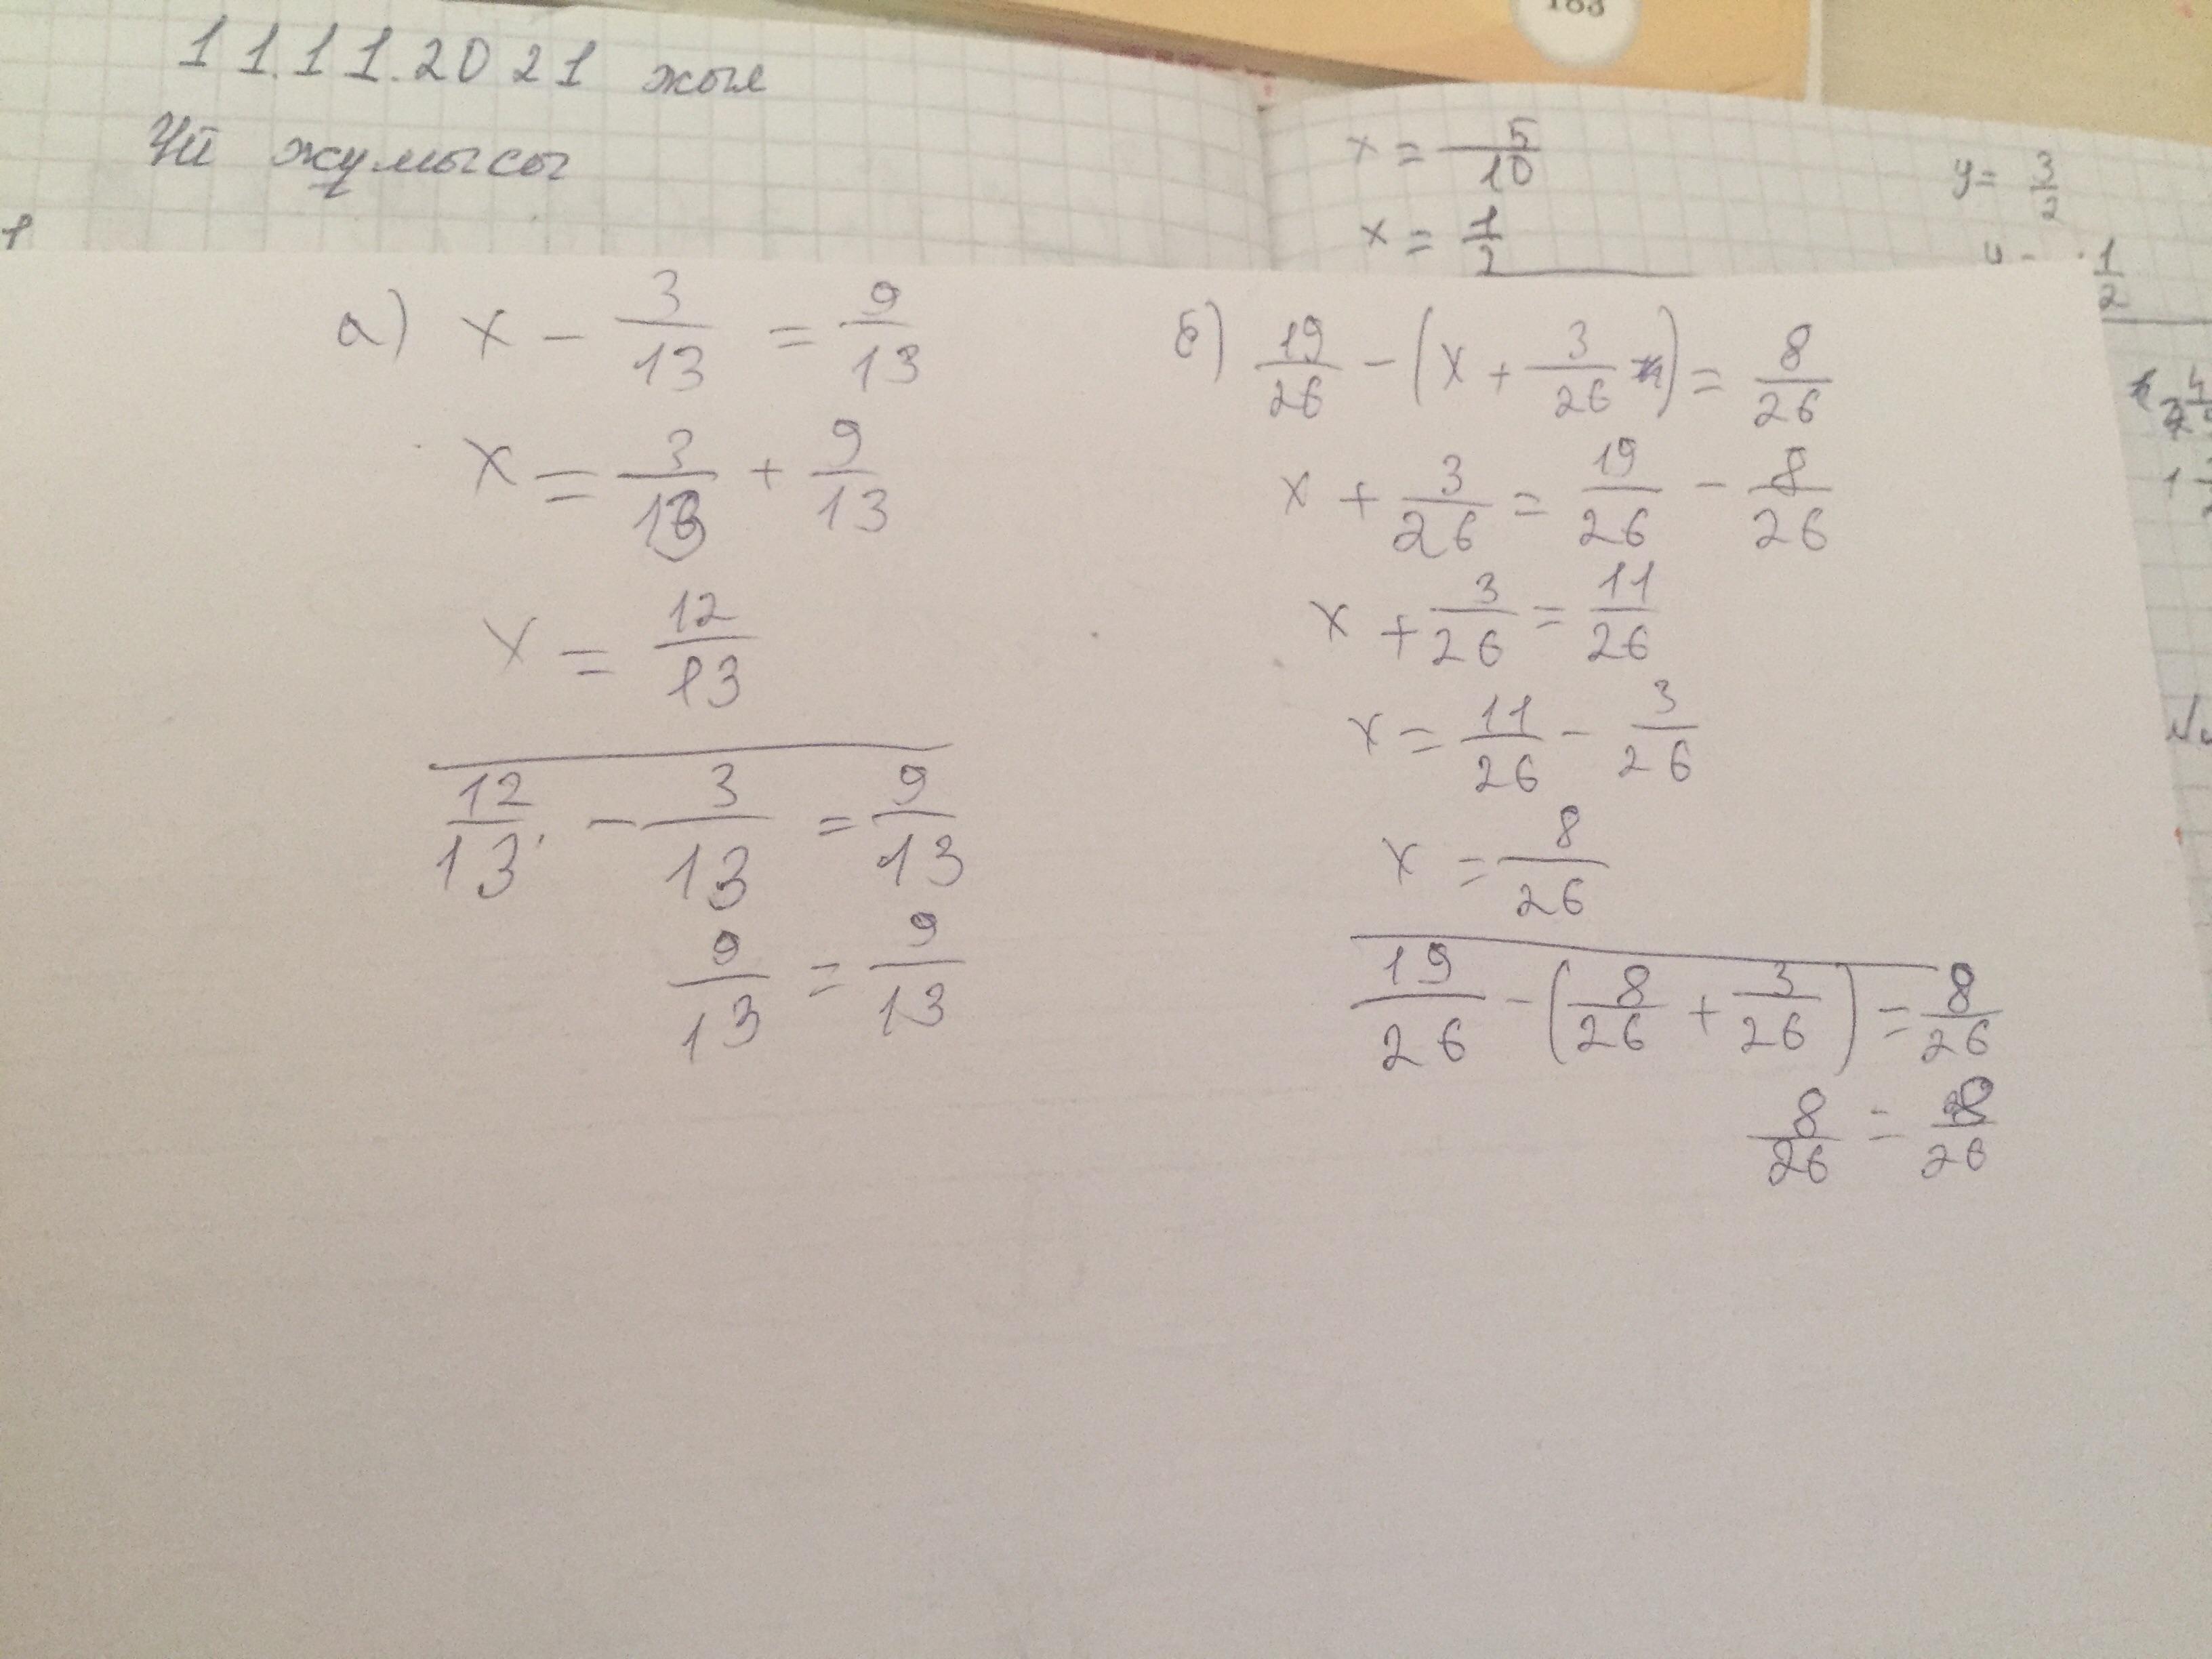 183
11.11.2021 жыл
Үй жұмысы
x = 5/10
x = 1/2
y = 3/2
1/2
а) x - 3/13 = 9/13
x = 3/13 + 9/13
x = 12/13
12/13 - 3/13 = 9/13
9/13 = 9/13
б) 19/26 - (x + 3/26) = 8/26
x + 3/26 = 19/26 - 8/26
x + 3/26 = 11/26
x = 11/26 - 3/26
x = 8/26
19/26 - (8/26 + 3/26) = 8/26
8/26 = 8/26